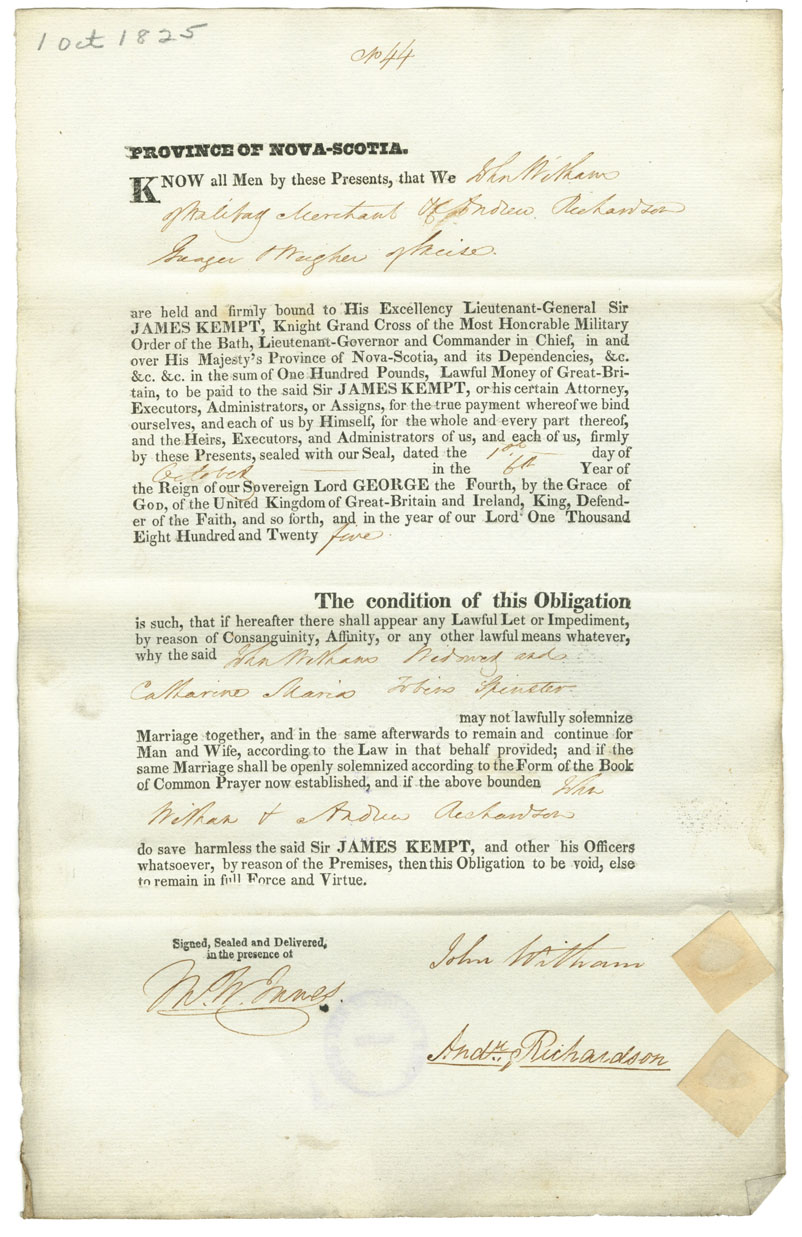 1 Oct 1825
No 44
PROVINCE OF NOVA-SCOTIA.
KNOW all Men by these Presents, that We John Witham
of Halifax Merchant & Andrew Richardson
Guager & Weigher of
are held and firmly bound to His Excellency Lieutenant-General Sir
JAMES KEMPT, Knight Grand Cross of the Most Honorable Military
Order of the Bath, Lieutenant-Governor and Commander in Chief, in and
over His Majesty's Province of Nova-Scotia, and its Dependencies, &c.
&c. &c. in the sum of One Hundred Pounds, Lawful Money of Great-Bri-
tain, to be paid to the said Sir JAMES KEMPT, or his certain Attorney,
Executors, Administrators, or Assigns, for the true payment whereof we bind
ourselves, and each of us by Himself, for the whole and every part thereof,
and the Heirs, Executors, and Administrators of us, and each of us, firmly
by these Presents, sealed with our Seal, dated the 1st day of
October in the 6th Year of
the Reign of our Sovereign Lord GEORGE the Fourth, by the Grace of
GOD, of the United Kingdom of Great-Britain and Ireland, King, Defend-
er of the Faith, and so forth, and in the year of our Lord One Thousand
Eight Hundred and Twenty five.
The condition of this Obligation
is such, that if hereafter there shall appear any Lawful Let or Impediment,
by reason of Consanguinity, Affinity, or any other lawful means whatever,
why the said John Witham Widower and
Catharine Maria Tobin Spinster
may not lawfully solemnize
Marriage together, and in the same afterwards to remain and continue for
Man and Wife, according to the Law in that behalf provided; and if the
same Marriage shall be openly solemnized according to the Form of the Book
of Common Prayer now established, and if the above bounden John
Witham & Andrew Richardson
do save harmless the said Sir JAMES KEMPT, and other his Officers
whatsoever, by reason of the Premises, then this Obligation to be void, else
to remain in full Force and Virtue.
Signed, Sealed and Delivered,
in the presence of
John Witham
Innes.
Andw. Richardson